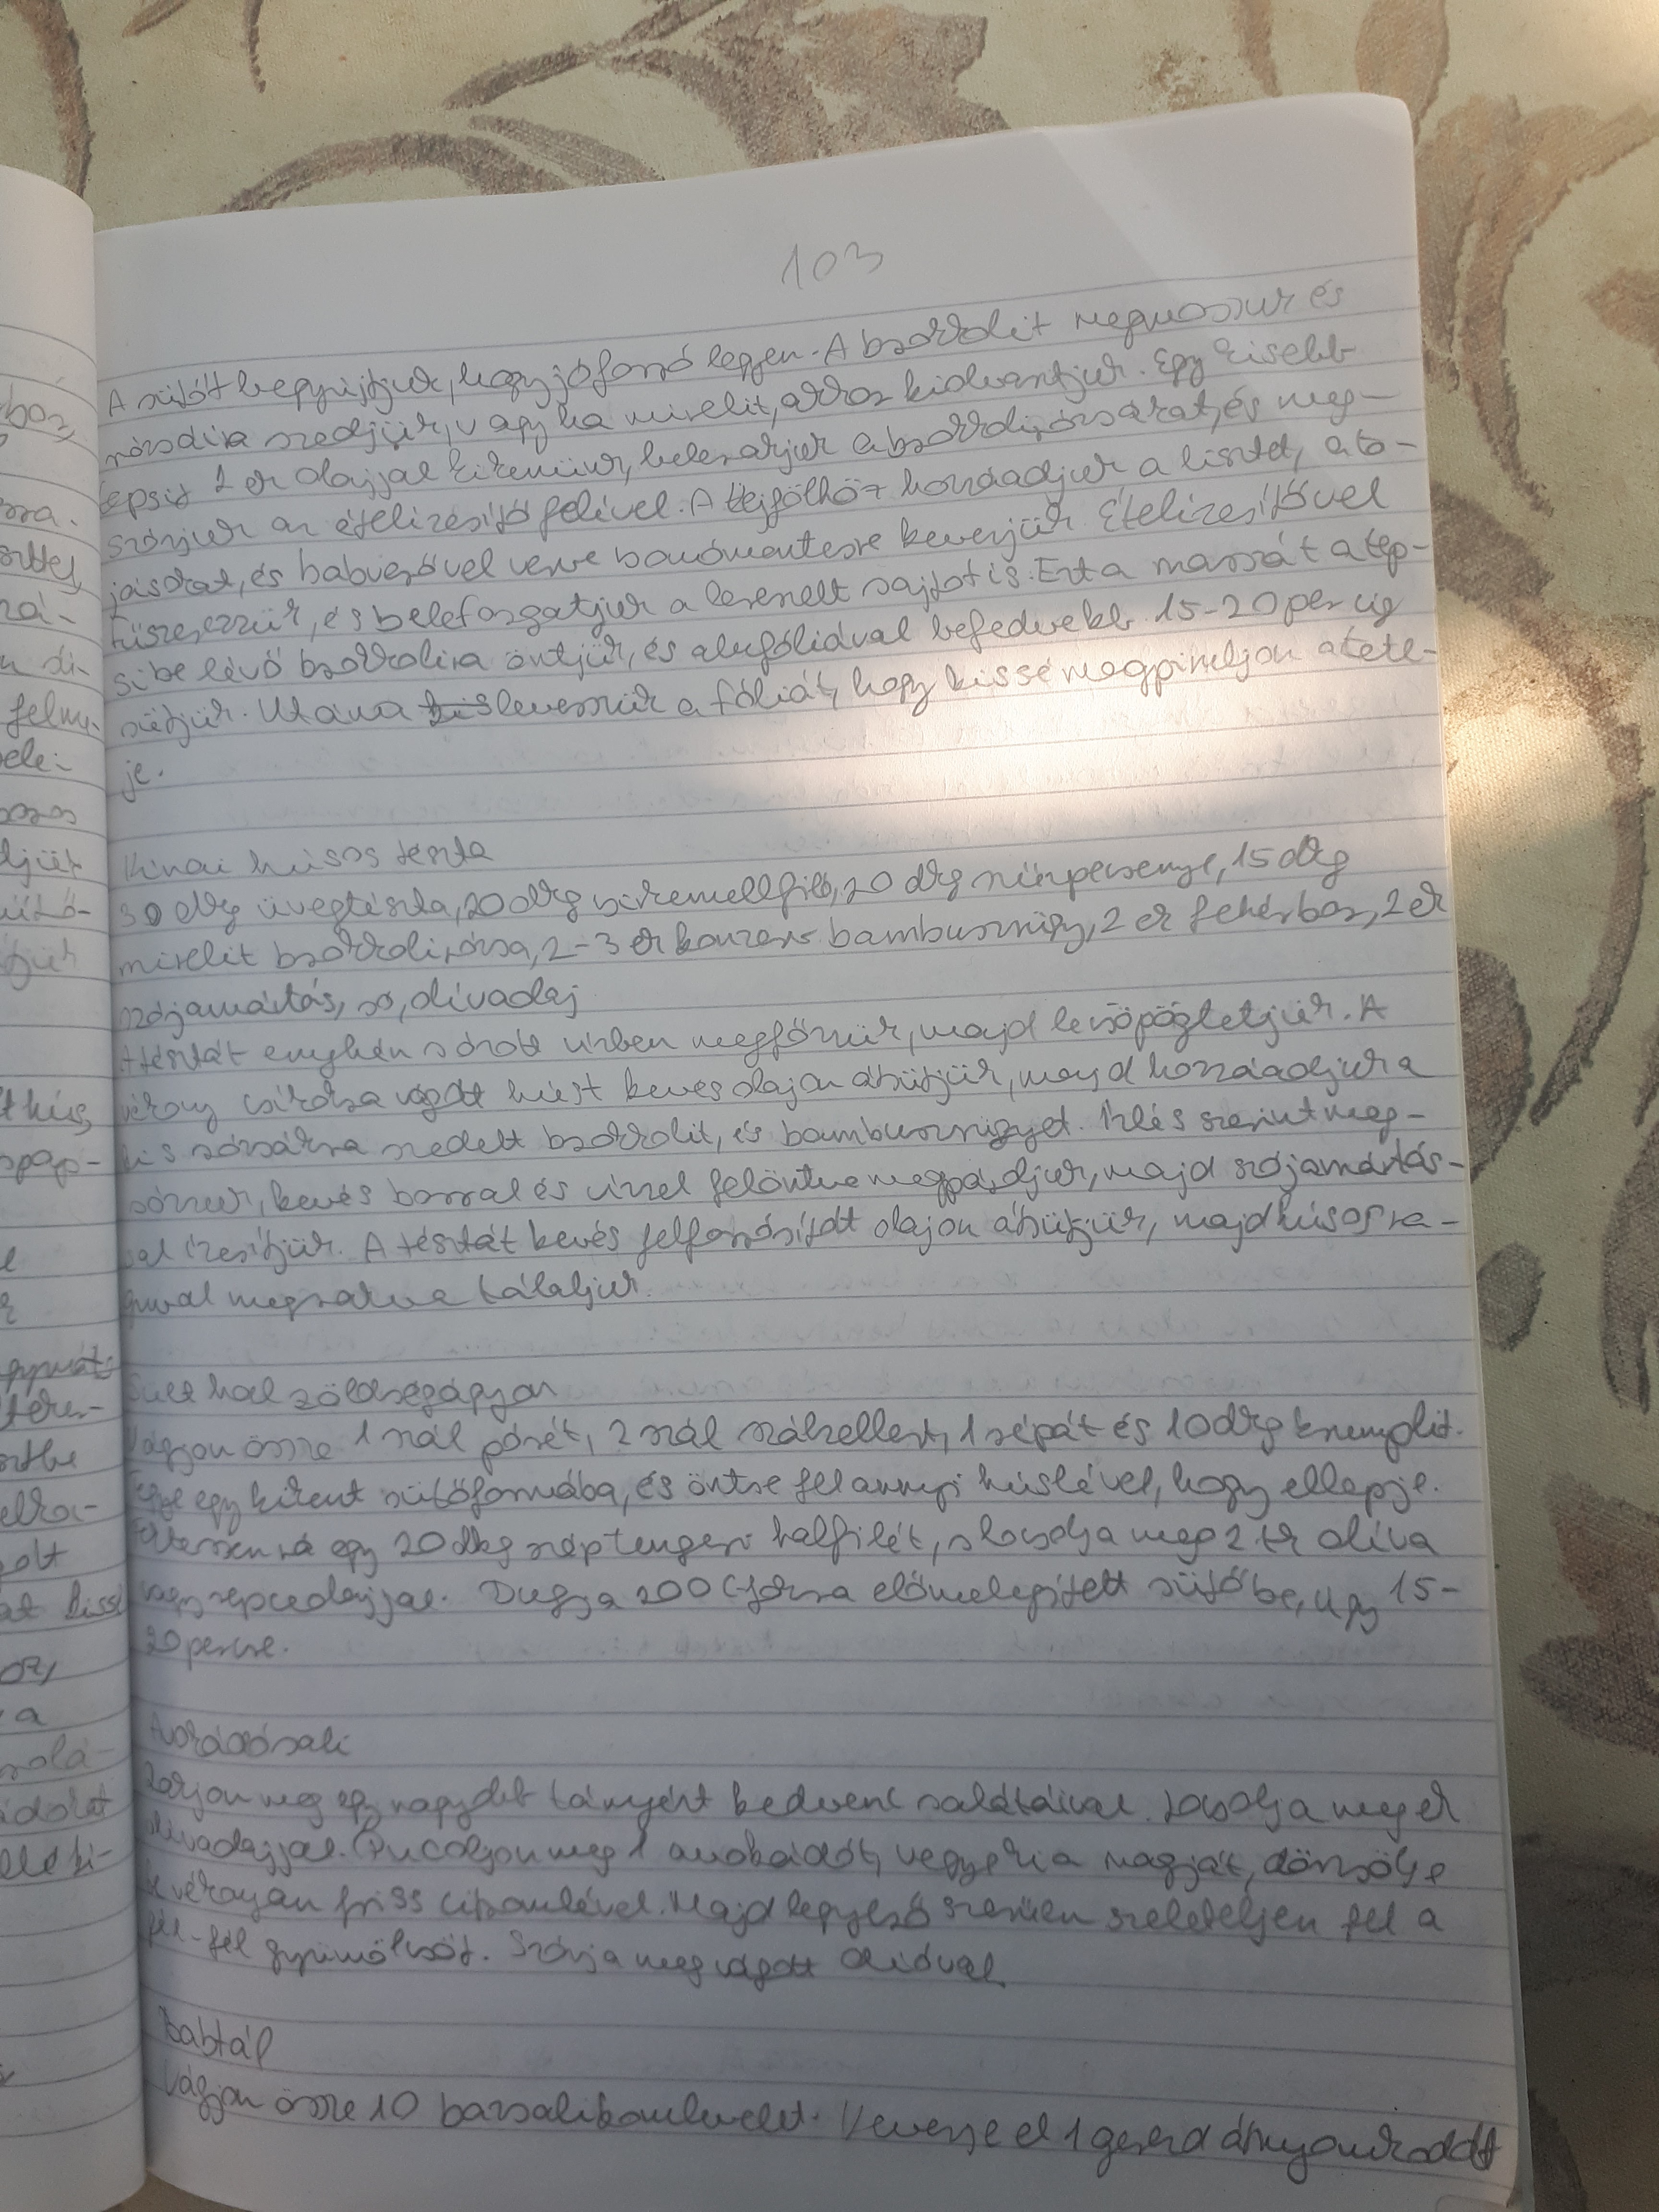 103
A sütőt begyújtjuk, hogy jó forró legyen. A brokkolit megmossuk és
rózsáira szedjük, vagy ha mirelit, akkor kiolvasztjuk. Egy kisebb
tepsit 1 ek olajjal kikenünk, belerakjuk a brokkolirózsákat, és meg-
szórjuk az ételízesítő felével. A tejfölhöz hozzáadjuk a lisztet, a to-
jásokat, és habverővel verve csomómentesre keverjük. Ételízesítővel
fűszerezzük, és beleforgatjuk a lereszelt sajtot is. Ezt a masszát a tep-
sibe lévő brokkolira öntjük, és alufóliával befedve kb 15-20 percig
sütjük. Utána levesszük a fóliát, hogy kissé megpiruljon a tete-
je.
Kínai húsos tészta
30 dkg üvegtészta, 20 dkg csirkemellfilé, 20 dkg szűzpecsenye, 15 dkg
mirelit brokkolirózsa, 2-3 ek konzerv bambuszrügy, 2 ek fehérbor, 2 ek
szójamártás, só, olívaolaj
A tésztát enyhén sózott vízben megfőzzük, majd lecsöpögtetjük. A
vékony csíkokra vágott húst kevés olajon átsütjük, majd hozzáadjuk a
kis rózsákra szedett brokkolit, és bambuszrügyet. Ízlés szerint meg-
sózzuk, kevés borral és vízzel felöntve megpároljuk, majd szójamártás-
sal ízesítjük. A tésztát kevés felforrósított olajon átsütjük, majd húsos ra-
guval megrakva tálaljuk.
Sült hal zöldségágyon
Vágjon össze 1 szál pórét, 2 szál szárzellert, 1 répát és 10 dkg krumplit.
Tegye egy kikent sütőformába, és öntse fel annyi húslével, hogy ellepje.
Fektessen rá egy 20 dkg-s tengeri halfilét, s locsolja meg 2 tk olíva
vagy repceolajjal. Dugja 200 C-fokra előmelegített sütőbe, úgy 15-
20 percre.
Avokádósali
Rakjon meg egy nagyobb tányért kedvenc salátáival. Locsolja meg ek
olívaolajjal. Pucoljon meg 1 avokádót, vegye ki a magját, dörzsölje
be vékonyan friss citromlével. Majd legyező szerűen szeleteljen fel a
fél-fél gyümölcsöt. Szórja meg vágott dióval.
Babtál
Vágjon össze 10 bazsalikomlevelet. Keverje el 1 gerezd átnyomkodott